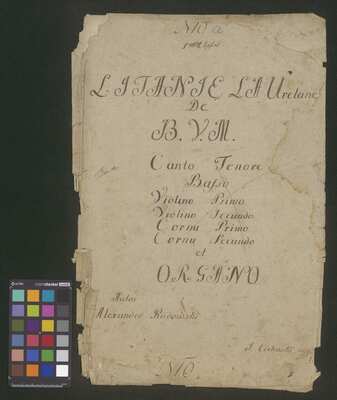 No
LITANIE LAUretane
De
B. V. M.
Canto Tenore
Basso
Violino Primo
Violino Secundo
Cornu Primo
Cornu Secundo
et
ORGANO
Alexander
No